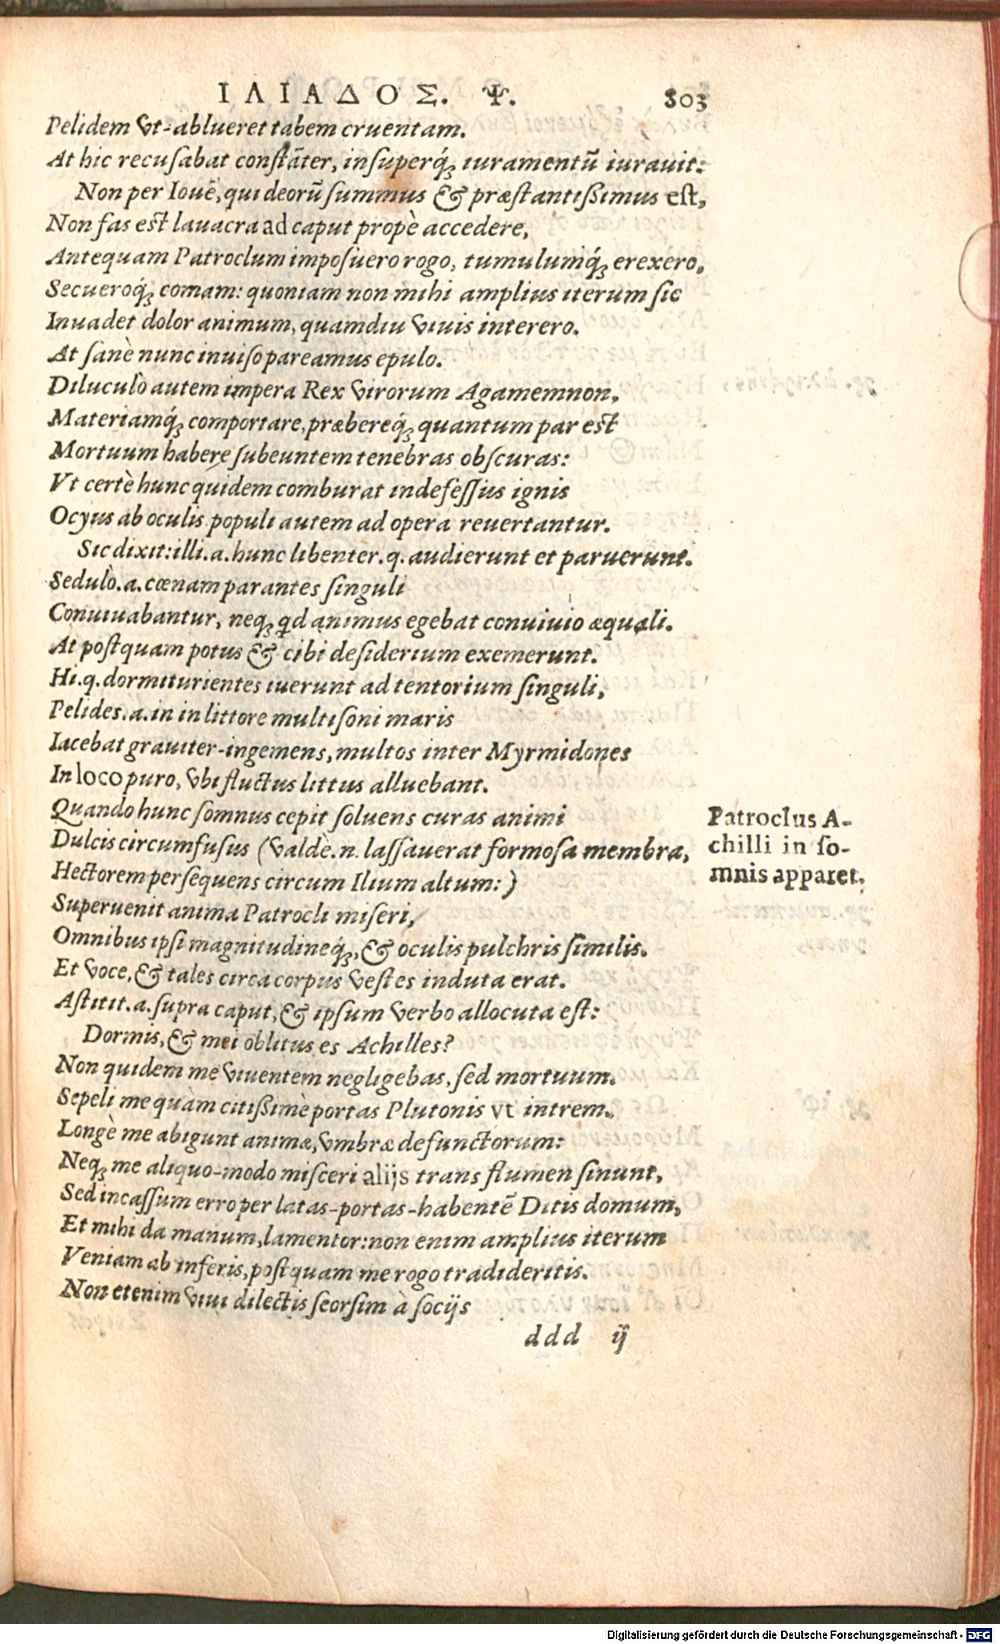 ΙΛΙΑΔΟΣ. Ψ. 803
Pelidem vt-ablueret tabem cruentam.
At hic recusabat constāter, insuperq́ꝫ iuramentū iurauit:
Non per Iouē, qui deorū summus & præstantißimus est,
Non fas est lauacra ad caput propè accedere,
Antequam Patroclum imposuero rogo, tumulumq́ꝫ erexero,
Secueroq́ꝫ comam: quoniam non mihi amplius iterum sic
Inuadet dolor animum, quamdiu viuis interero.
At sanè nunc inuiso pareamus epulo.
Diluculò autem impera Rex virorum Agamemnon,
Materiamq́ꝫ comportare, præbereq́ꝫ quantum par est
Mortuum habere subeuntem tenebras obscuras:
Vt certè hunc quidem comburat indefessus ignis
Ocyus ab oculis populi autem ad opera reuertantur.
Sic dixit: illi.a. hunc libenter.q. audierunt et paruerunt.
Sedulò.a. cœnam parantes singuli
Conuiuabantur, neqꝫ qd animus egebat conuiuio æquali.
At postquam potus & cibi desiderium exemerunt.
Hi.q. dormiturientes iuerunt ad tentorium singuli,
Pelides.a. in in littore multisoni maris
Iacebat grauiter-ingemens, multos inter Myrmidones
In loco puro, vbi fluctus littus alluebant.
Quando hunc somnus cepit soluens curas animi
Dulcis circumfusus (valdè.n. lassauerat formosa membra,
Hectorem persequens circum Ilium altum:)
Superuenit anima Patrocli miseri,
Omnibus ipsi magnitudineq́ꝫ, & oculis pulchris similis.
Et voce, & tales circa corpus vestes induta erat.
Astitit.a. supra caput, & ipsum verbo allocuta est:
Dormis, & mei oblitus es Achilles?
Non quidem me viuentem negligebas, sed mortuum.
Sepeli me quam citißimè portas Plutonis vt intrem.
Longè me abigunt animæ, vmbræ defunctorum:
Neqꝫ me aliquo-modo misceri alijs trans flumen sinunt,
Sed incassum erro per latas-portas-habentē Ditis domum,
Et mihi da manum, lamentor: non enim amplius iterum
Veniam ab inferis, postquam me rogo tradideritis.
Non etenim viui dilectis seorsim à socijs
ddd ij
Patroclus A-
chilli in so-
mnis apparet.
Digitalisierung gefördert durch die Deutsche Forschungsgemeinschaft - DFG